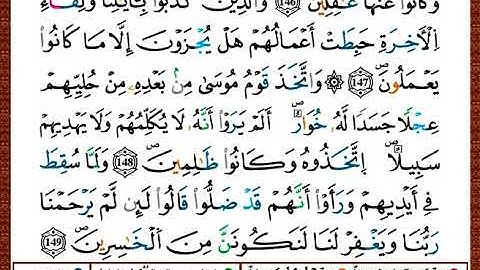 وَكَانُوا۟ عَنْهَا غَٰفِلِينَ ﴿146﴾ وَالَّذِينَ كَذَّبُوا۟ بِـَٔايَٰتِنَا وَلِقَآءِ
اِ۬لْأَخِرَةِ حَبِطَتْ أَعْمَالُهُمْ هَلْ يُجْزَوْنَ إِلَّا مَا كَانُوا۟
يَعْمَلُونَۖ ﴿147﴾ ۞ وَاتَّخَذَ قَوْمُ مُوسَىٰ مِنۢ بَعْدِهِۦ مِنْ حُلِيِّهِمْ
عِجْلًا جَسَدًا لَّهُۥ خُوَارٌۖ اَلَمْ يَرَوْا۟ اَنَّهُۥ لَا يُكَلِّمُهُمْ وَلَا يَهْدِيهِمْ
سَبِيلًاۖ اِ۪تَّخَذُوهُ وَكَانُوا۟ ظَٰلِمِينَۖ ﴿148﴾ وَلَمَّا سُقِطَ
فِىٓ أَيْدِيهِمْ وَرَأَوْا۟ اَنَّهُمْ قَدْ ضَلُّوا۟ قَالُوا۟ لَئِن لَّمْ يَرْحَمْنَا
رَبُّنَا وَيَغْفِرْ لَنَا لَنَكُونَنَّ مِنَ اَ۬لْخَٰسِرِينَۖ ﴿149﴾